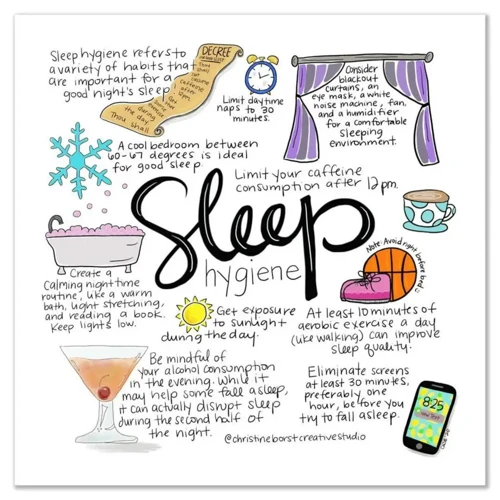 Sleep hygiene refers to
a variety of habits that
are important for a
good night's sleep
DECREE
Thou shall
caffeine
after
12pm
during
the day
Thou shall
Limit daytime
naps to 30
minutes.
Consider
blackout
curtains, an
eye mask, a white
noise machine, fan,
and a humidifier
for a comfortable
sleeping
environment.
A cool bedroom between
60-67 degrees is ideal
for good sleep.
Limit your caffeine
consumption after 12pm.
Sleep
hygiene
Note: Avoid right before bed
Create a
calming nighttime
routine, like a warm
bath, light stretching,
and reading a book.
Keep lights low.
Get exposure
to sunlight
during the day.
At least 10 minutes of
aerobic exercise a day
(like walking) can improve
sleep quality.
Be mindful of
your alcohol consumption
in the evening. While it
may help some fall asleep,
it can actually disrupt sleep
during the second half of
the night.
Eliminate screens
at least 30 minutes,
preferably one
hour, before you
try to fall asleep.
8:25
@christineborstcreativestudio